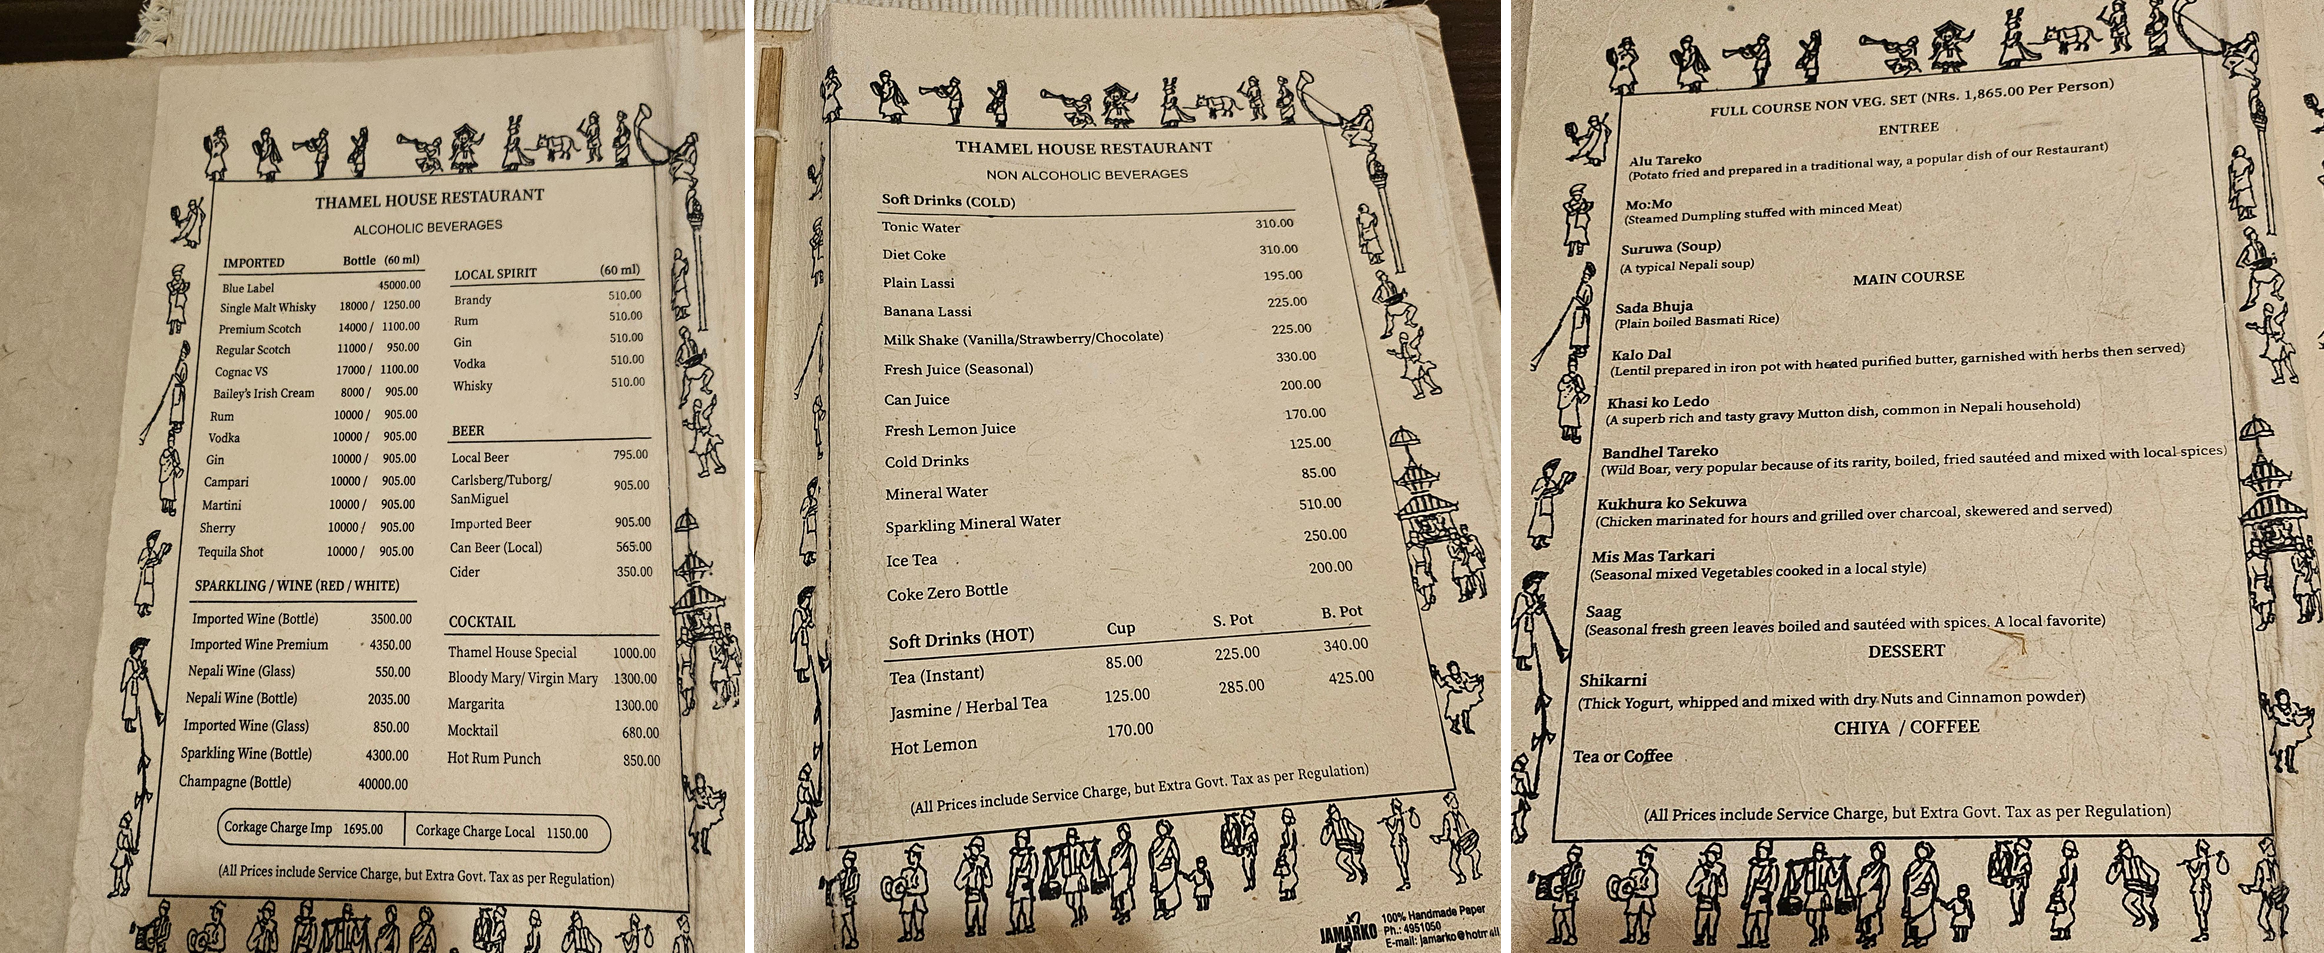 THAMEL HOUSE RESTAURANT
ALCOHOLIC BEVERAGES
IMPORTED Bottle (60 ml)
Blue Label 45000.00
Single Malt Whisky 18000 / 1250.00
Premium Scotch 14000 / 1100.00
Regular Scotch 11000 / 950.00
Cognac VS 17000 / 1100.00
Bailey's Irish Cream 8000 / 905.00
Rum 10000 / 905.00
Vodka 10000 / 905.00
Gin 10000 / 905.00
Campari 10000 / 905.00
Martini 10000 / 905.00
Sherry 10000 / 905.00
Tequila Shot 10000 / 905.00
SPARKLING / WINE (RED / WHITE)
Imported Wine (Bottle) 3500.00
Imported Wine Premium 4350.00
Nepali Wine (Glass) 550.00
Nepali Wine (Bottle) 2035.00
Imported Wine (Glass) 850.00
Sparkling Wine (Bottle) 4300.00
Champagne (Bottle) 40000.00
LOCAL SPIRIT (60 ml)
Brandy 510.00
Rum 510.00
Gin 510.00
Vodka 510.00
Whisky 510.00
BEER
Local Beer 795.00
Carlsberg/Tuborg/
SanMiguel 905.00
Imported Beer 905.00
Can Beer (Local) 565.00
Cider 350.00
COCKTAIL
Thamel House Special 1000.00
Bloody Mary/ Virgin Mary 1300.00
Margarita 1300.00
Mocktail 680.00
Hot Rum Punch 850.00
Corkage Charge Imp 1695.00 Corkage Charge Local 1150.00
(All Prices include Service Charge, but Extra Govt. Tax as per Regulation)
THAMEL HOUSE RESTAURANT
NON ALCOHOLIC BEVERAGES
Soft Drinks (COLD)
Tonic Water 310.00
Diet Coke 310.00
Plain Lassi 195.00
Banana Lassi 225.00
Milk Shake (Vanilla/Strawberry/Chocolate) 225.00
Fresh Juice (Seasonal) 330.00
Can Juice 200.00
Fresh Lemon Juice 170.00
Cold Drinks 125.00
Mineral Water 85.00
Sparkling Mineral Water 510.00
Ice Tea 250.00
Coke Zero Bottle 200.00
Soft Drinks (HOT) Cup S. Pot B. Pot
Tea (Instant) 85.00 225.00 340.00
Jasmine / Herbal Tea 125.00 285.00 425.00
Hot Lemon 170.00
(All Prices include Service Charge, but Extra Govt. Tax as per Regulation)
JAMARKO
100% Handmade Paper
Ph.: 4951050
E-mail: jamarko@hotmail
FULL COURSE NON VEG. SET (NRs. 1,865.00 Per Person)
ENTREE
Alu Tareko
(Potato fried and prepared in a traditional way, a popular dish of our Restaurant)
Mo:Mo
(Steamed Dumpling stuffed with minced Meat)
Suruwa (Soup)
(A typical Nepali soup)
MAIN COURSE
Sada Bhuja
(Plain boiled Basmati Rice)
Kalo Dal
(Lentil prepared in iron pot with heated purified butter, garnished with herbs then served)
Khasi ko Ledo
(A superb rich and tasty gravy Mutton dish, common in Nepali household)
Bandhel Tareko
(Wild Boar, very popular because of its rarity, boiled, fried sautéed and mixed with local spices)
Kukhura ko Sekuwa
(Chicken marinated for hours and grilled over charcoal, skewered and served)
Mis Mas Tarkari
(Seasonal mixed Vegetables cooked in a local style)
Saag
(Seasonal fresh green leaves boiled and sautéed with spices. A local favorite)
DESSERT
Shikarni
(Thick Yogurt, whipped and mixed with dry Nuts and Cinnamon powder)
CHIYA / COFFEE
Tea or Coffee
(All Prices include Service Charge, but Extra Govt. Tax as per Regulation)